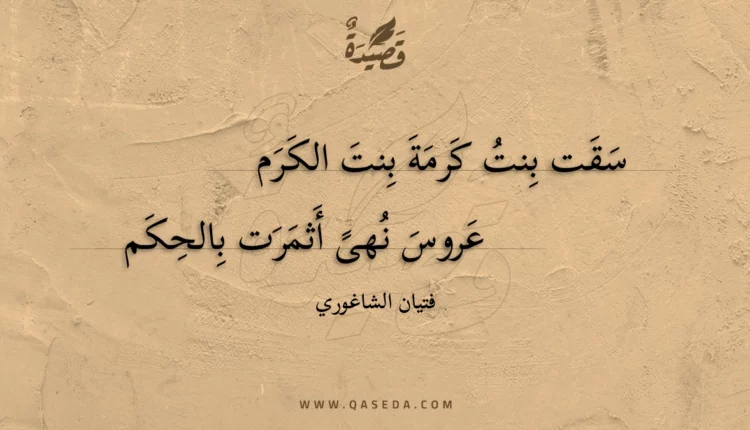 قَصِيْدَةٌ
سَقَت بِنتُ كَرمَةَ بِنتَ الكَرَم
عَروسَ نُهىً أَثمَرَت بِالحِكَم
فتيان الشاغوري
WWW.QASEDA.COM